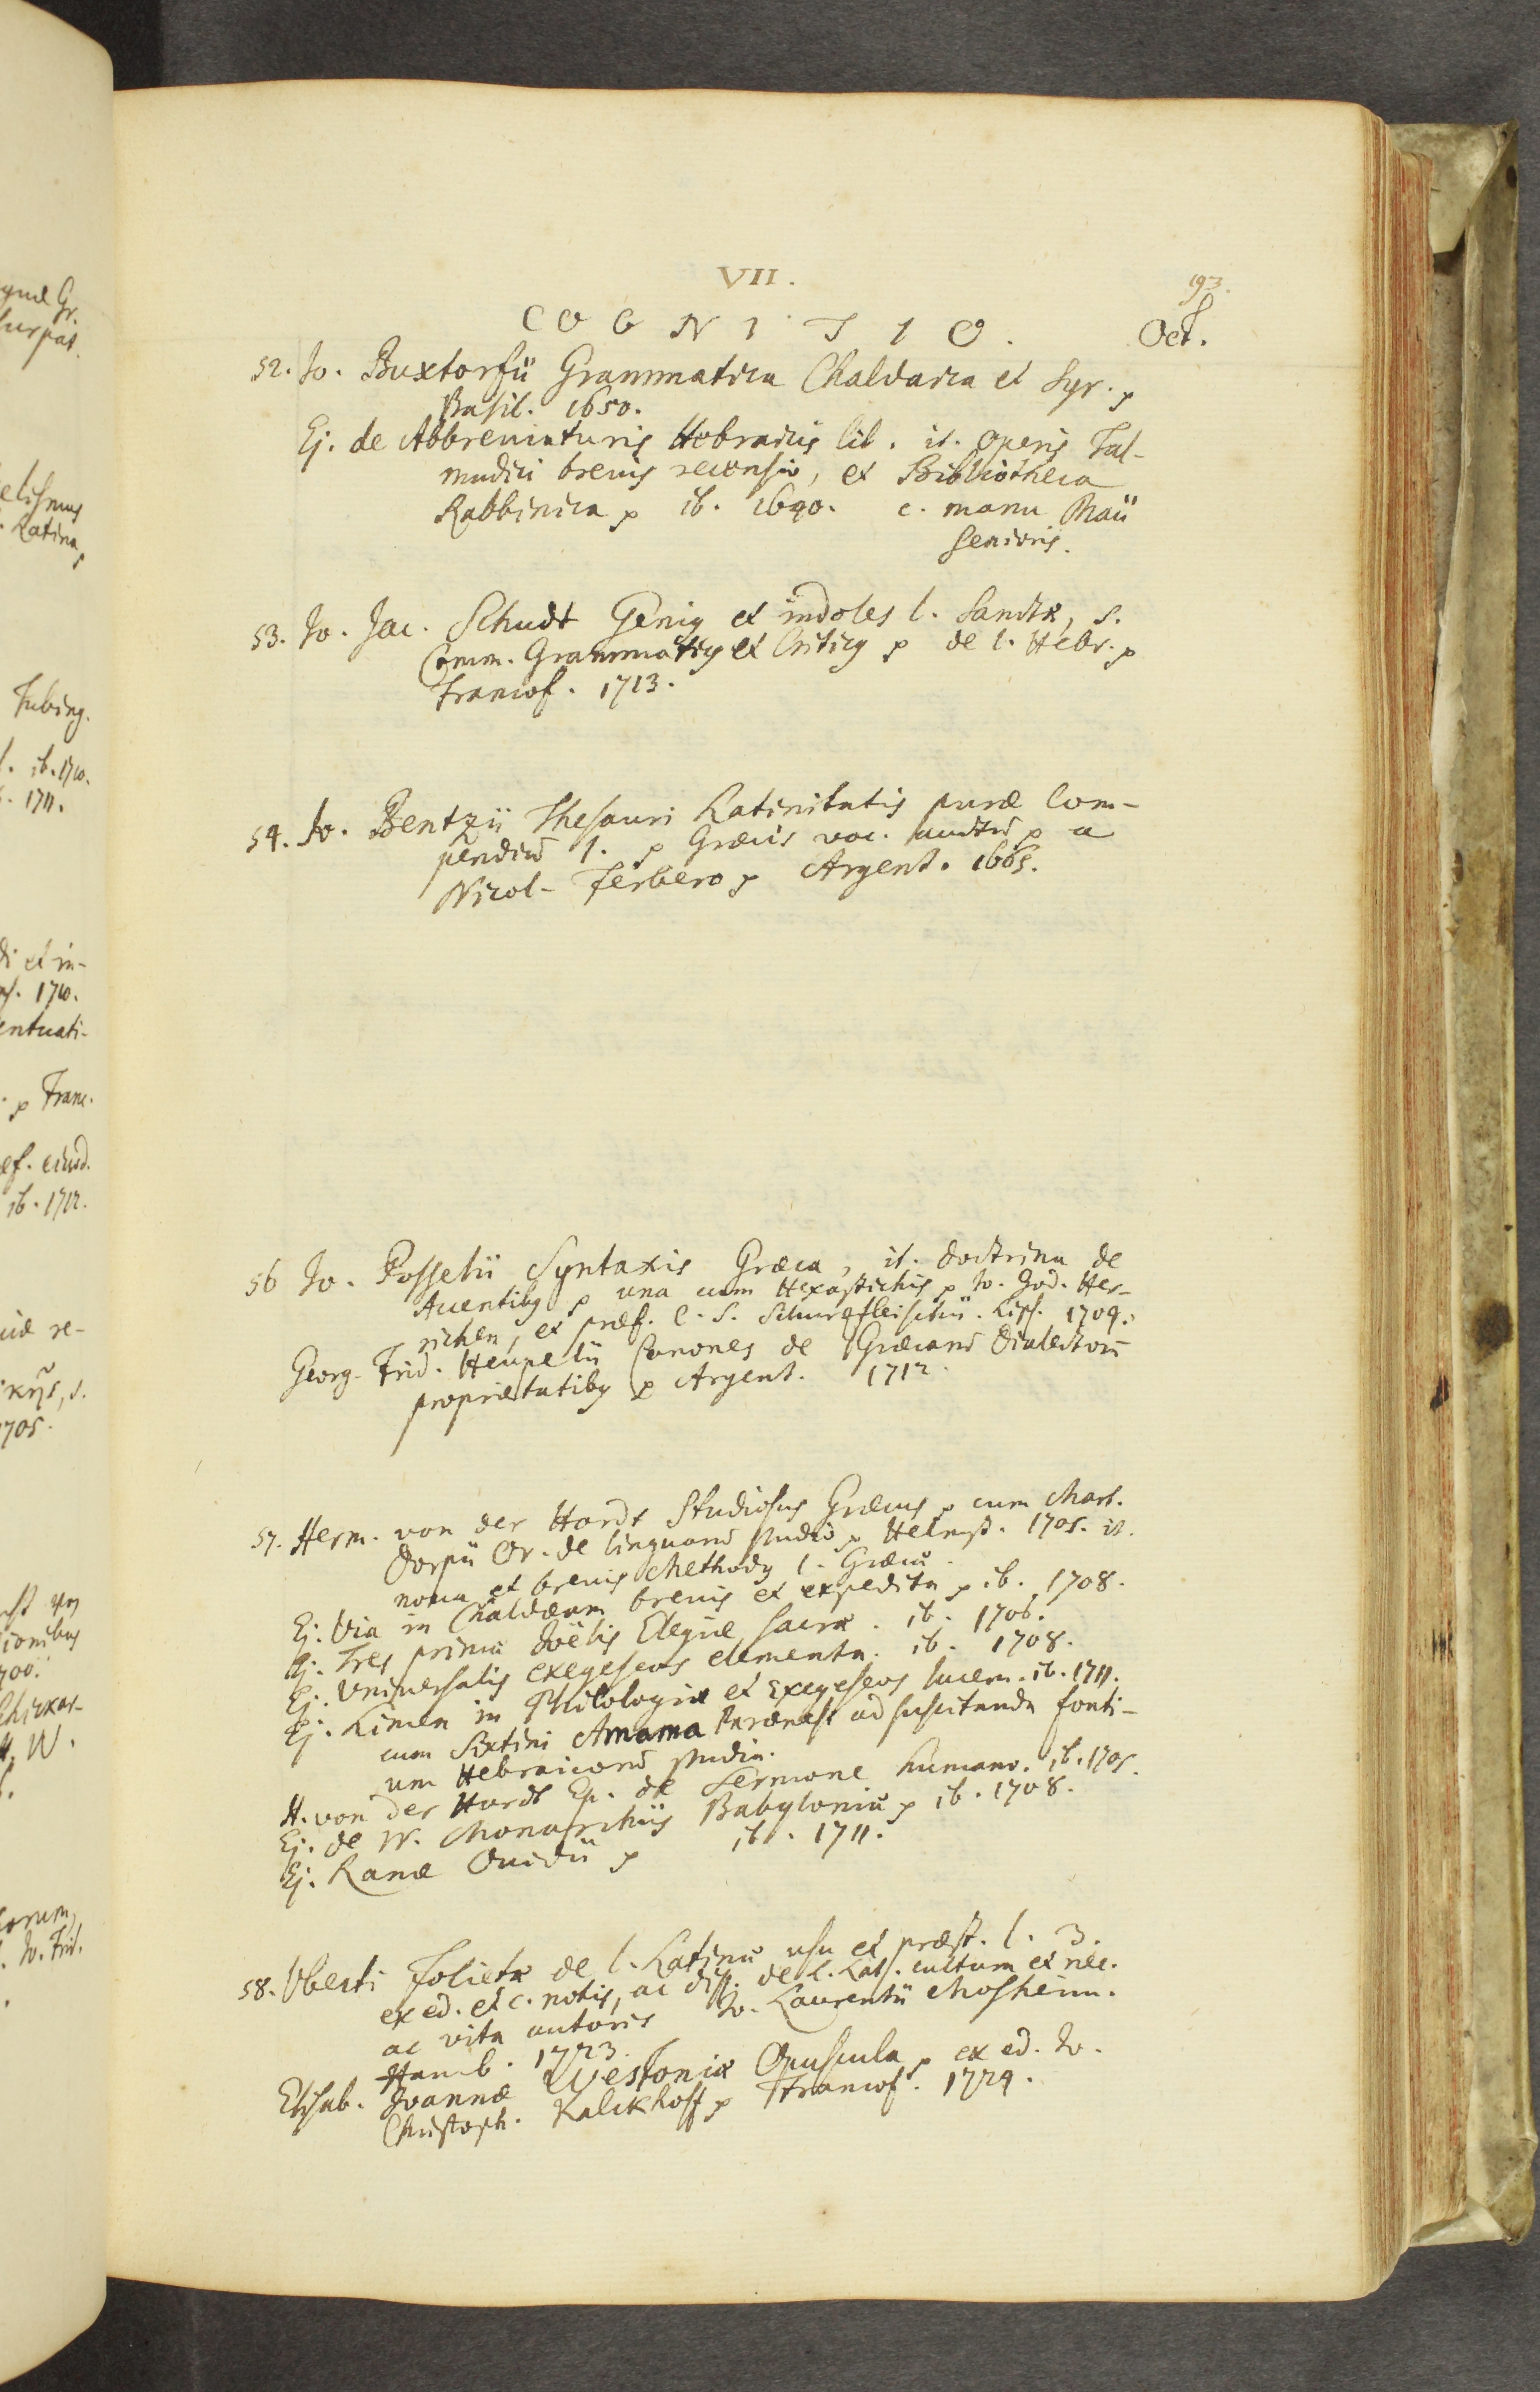 VII.
193.
COGNITIO.
Oct.
52. Jo. Buxtorfii Grammatica Chaldaica et Syr. p
Basil. 1650.
Ej. de Abbreviaturis Hebraicis lib. it. operis Tal-
mudici brevis recensio, et Bibliotheca
Rabbinica p ib. 1640. c. manu Maii
Senioris.
53. Jo. Jac. Schudt Genig et indoles l. Sanctæ, s.
Comm. Grammaticg et Criticg p de l. Hebr. p
Francof. 1713.
54. Jo. Bentzii Thesauri Latinitatis puræ Com-
pendiū 1. p Græcis voc. auctū p a
Nicol. Ferbero p Argent. 1665.
56 Jo. Posselii Syntaxis Græca, it. doctrina de
Accentibg p una cum Hexastichis p Jo. God. Her-
richen, et præf. C. S. Schurzfleischii. Lips. 1709.
Georg. Frid. Heupelii Canones de Græcarū Dialectorū
proprietatibg p Argent. 1712.
57. Herm. von der Hardt Studiosus Græcus p cum Mart.
Dorpii Or. de linguarū studio p Helmst. 1705. it.
nova et brevis Methodg l. Græcæ.
Ej. Via in Chaldæam brevis et expedita p ib. 1708.
Ej. Tres primæ Joëlis Elegiæ sacræ. ib. 1706.
Ej. Universalis exegeseos elementa. ib. 1708.
Ej. Limen in Philologiæ et Exegeseos lucem. ib. 1711.
cum Sixtini Amama Parænesi ad suscitanda fonti-
um Hebraicorū studia.
H. von der Hardt Ep. de Sermone humano. ib. 1705.
Ej. de IV. Monarchiis Babyloniæ p ib. 1708.
Ej. Ranæ Ovidii p ib. 1711.
58. Uberti Folietæ de l. Latinæ usu et præst. l. 3.
ex ed. et c. notis, ac diss. de l. Lat. cultura et nec.
ac vita autoris Jo. Laurentii Mosheim.
Hamb. 1723.
Elisab. Joannæ Westoniæ Opuscula p ex ed. Jo.
Christoph. Kalckhoff p Francof. 1724.